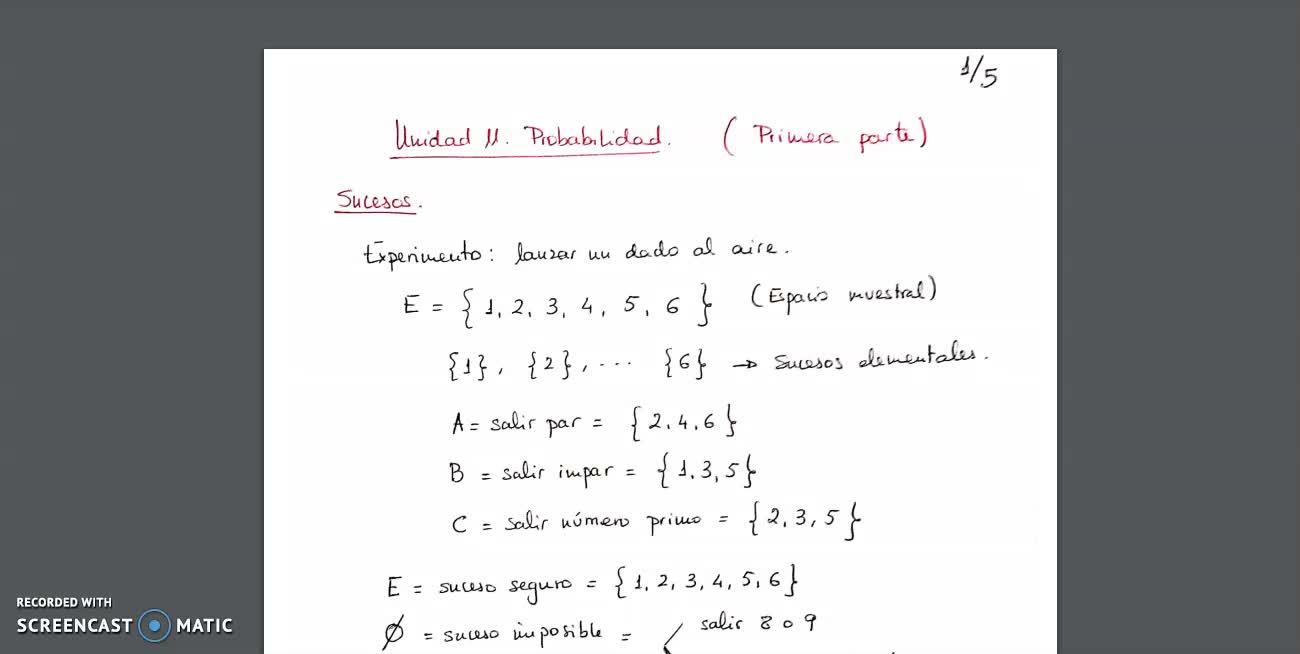 1/5
Unidad 11. Probabilidad. (Primera parte)
Sucesos.
Experimento: lanzar un dado al aire.
E = { 1, 2, 3, 4, 5, 6 } (Espacio muestral)
{1}, {2}, ... {6} → Sucesos elementales.
A = salir par = { 2, 4, 6 }
B = salir impar = { 1, 3, 5 }
C = salir número primo = { 2, 3, 5 }
E = suceso seguro = { 1, 2, 3, 4, 5, 6 }
∅ = suceso imposible = { salir 8 o 9
RECORDED WITH
SCREENCAST MATIC